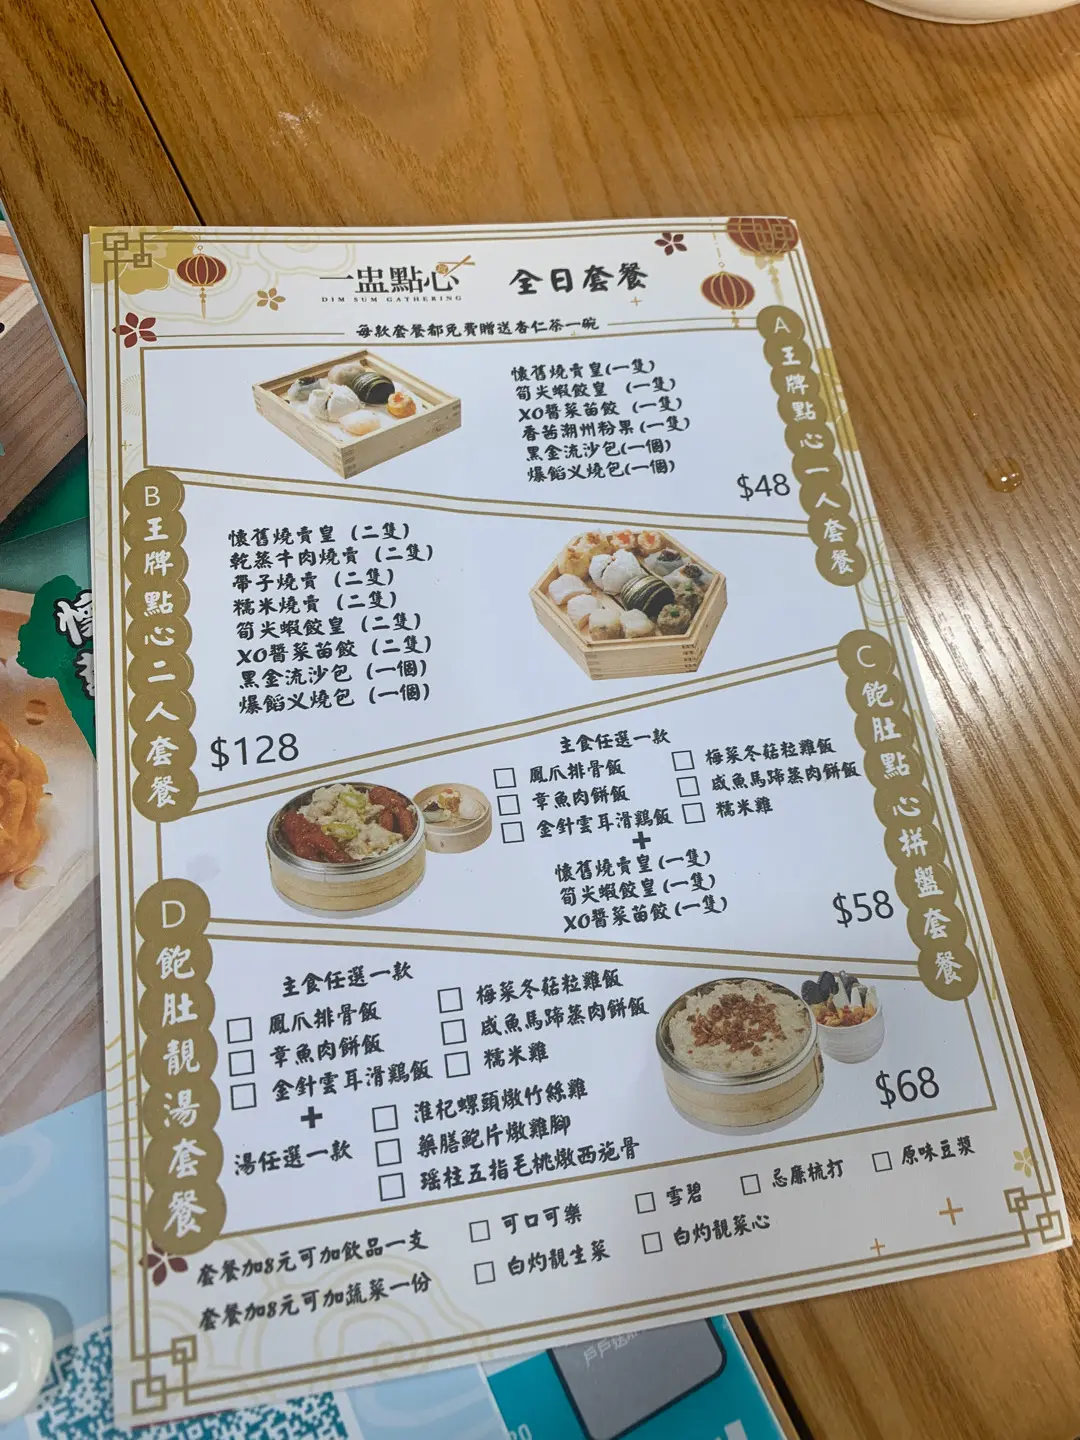 一盅點心
DIM SUM GATHERING
全日套餐
每款套餐都免費贈送杏仁茶一碗
A 王牌點心一人套餐
懷舊燒賣皇(一隻)
筍尖蝦餃皇 (一隻)
XO醬菜苗餃 (一隻)
香茜潮州粉果(一隻)
黑金流沙包(一個)
爆餡叉燒包(一個)
$48
B 王牌點心二人套餐
懷舊燒賣皇 (二隻)
乾蒸牛肉燒賣 (二隻)
帶子燒賣 (二隻)
糯米燒賣 (二隻)
筍尖蝦餃皇 (二隻)
XO醬菜苗餃 (二隻)
黑金流沙包 (一個)
爆餡叉燒包 (一個)
$128
C 飽肚點心拼盤套餐
主食任選一款
鳳爪排骨飯
章魚肉餅飯
金針雲耳滑鷄飯
梅菜冬菇粒雞飯
咸魚馬蹄蒸肉餅飯
糯米雞
+
懷舊燒賣皇(一隻)
筍尖蝦餃皇(一隻)
XO醬菜苗餃(一隻)
$58
D 飽肚靚湯套餐
主食任選一款
鳳爪排骨飯
章魚肉餅飯
金針雲耳滑鷄飯
梅菜冬菇粒雞飯
咸魚馬蹄蒸肉餅飯
糯米雞
+
湯任選一款
淮杞螺頭燉竹絲雞
藥膳鮑片燉雞腳
瑤柱五指毛桃燉西施骨
$68
套餐加8元可加飲品一支
可口可樂
雪碧
忌廉梳打
原味豆漿
套餐加8元可加蔬菜一份
白灼靚生菜
白灼靚菜心